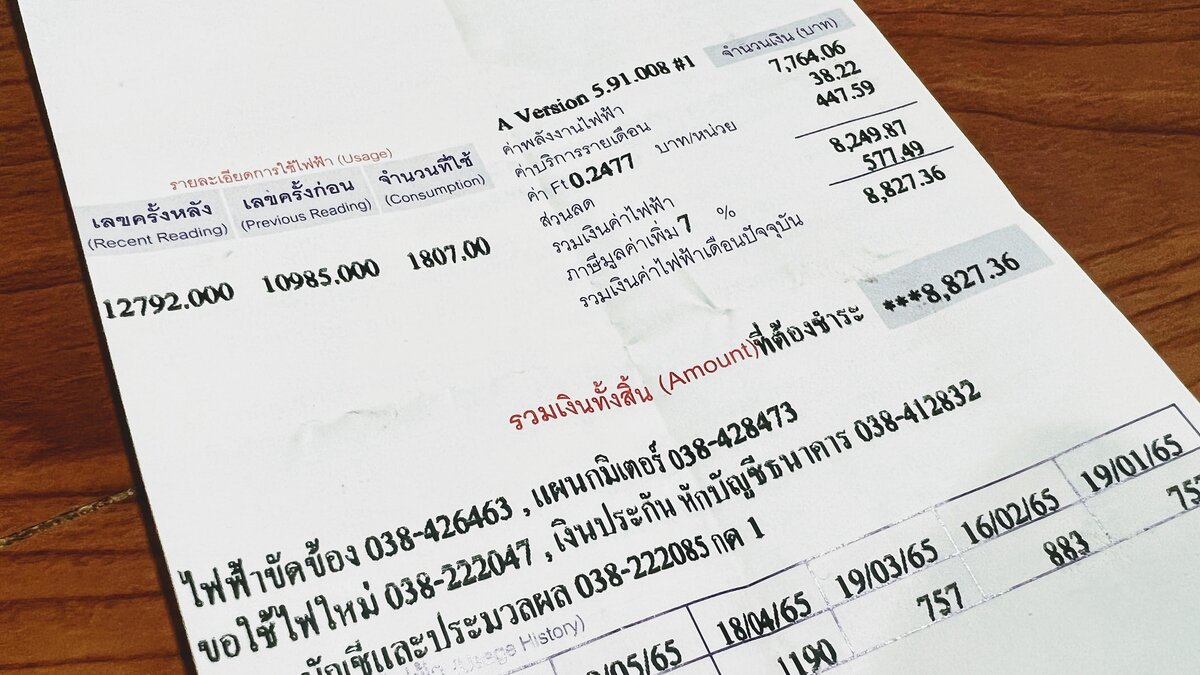 A Version 5.91.008 #1
จำนวนเงิน (บาท)
ค่าพลังงานไฟฟ้า 7,764.06
ค่าบริการรายเดือน 38.22
ค่า Ft 0.2477 บาท/หน่วย 447.59
ส่วนลด
รวมเงินค่าไฟฟ้า 8,249.87
ภาษีมูลค่าเพิ่ม 7 % 577.49
รวมเงินค่าไฟฟ้าเดือนปัจจุบัน 8,827.36
รายละเอียดการใช้ไฟฟ้า (Usage)
เลขครั้งหลัง เลขครั้งก่อน จำนวนที่ใช้
(Recent Reading) (Previous Reading) (Consumption)
12792.000 10985.000 1807.00
รวมเงินทั้งสิ้น (Amount)ที่ต้องชำระ ***8,827.36
ไฟฟ้าขัดข้อง 038-426463 , แผนกมิเตอร์ 038-428473
ขอใช้ไฟใหม่ 038-222047 , เงินประกัน หักบัญชีธนาคาร 038-412832
บัญชีและประมวลผล 038-222085 กด 1
Usage History)
/05/65 18/04/65 19/03/65 16/02/65 19/01/65
1190 757 883 757